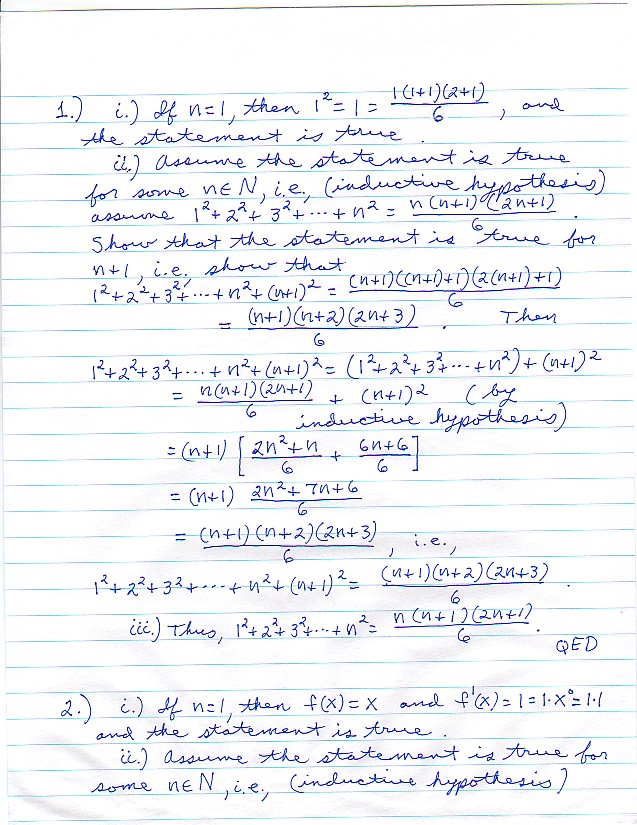 1.) i.) If n=1, then 1² = 1 = 1(1+1)(2+1)/6, and
the statement is true.
ii.) Assume the statement is true
for some n∈N, i.e., (inductive hypothesis)
assume 1²+2²+3²+⋯+n² = n(n+1)(2n+1)/6.
Show that the statement is true for
n+1, i.e. show that
1²+2²+3²+⋯+n²+(n+1)² = (n+1)((n+1)+1)(2(n+1)+1)/6
= (n+1)(n+2)(2n+3)/6. Then
1²+2²+3²+⋯+n²+(n+1)² = (1²+2²+3²+⋯+n²)+(n+1)²
= n(n+1)(2n+1)/6 + (n+1)² (by
inductive hypothesis)
= (n+1) [ (2n²+n)/6 + (6n+6)/6 ]
= (n+1) (2n²+7n+6)/6
= (n+1)(n+2)(2n+3)/6, i.e.,
1²+2²+3²+⋯+n²+(n+1)² = (n+1)(n+2)(2n+3)/6.
iii.) Thus, 1²+2²+3²+⋯+n² = n(n+1)(2n+1)/6.
QED
2.) i.) If n=1, then f(x)=x and f'(x)=1=1·x⁰=1·1
and the statement is true.
ii.) Assume the statement is true for
some n∈N, i.e., (inductive hypothesis)